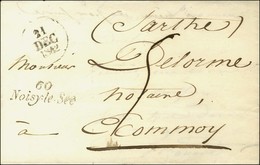 (Sarthe)
21
DEC
1842
Monsieur Delorme
60
Noisy-le-Sec
notaire,
5
à Ecommoy